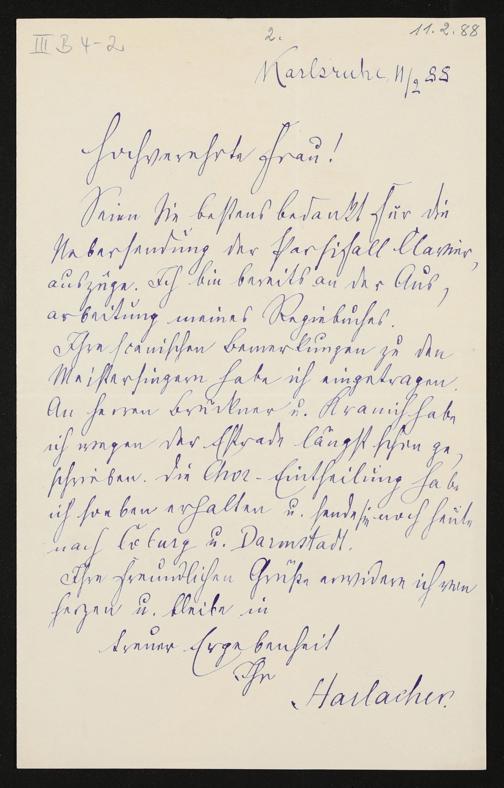 III B 4-2
2.
11.2.88
Karlsruhe, 11/2 88
Hochverehrte Frau!
Seien Sie bestens bedankt für die
Uebersendung der Parsifall Clavier,
auszüge. Ich bin bereits an der Aus,
arbeitung meines Regiebuches.
Ihre scenischen Bemerkungen zu den
Meistersingern habe ich eingetragen.
An Herren Brückner u. Kranich habe
ich wegen der Estrade längst schon ge,
schrieben. Die Chor-Eintheilung habe
ich soeben erhalten u. sende sie noch heute
nach Coburg u. Darmstadt.
Ihre freundlichen Grüße erwidere ich von
Herzen u. bleibe in
treuer Ergebenheit
Ihr
Harlacher.